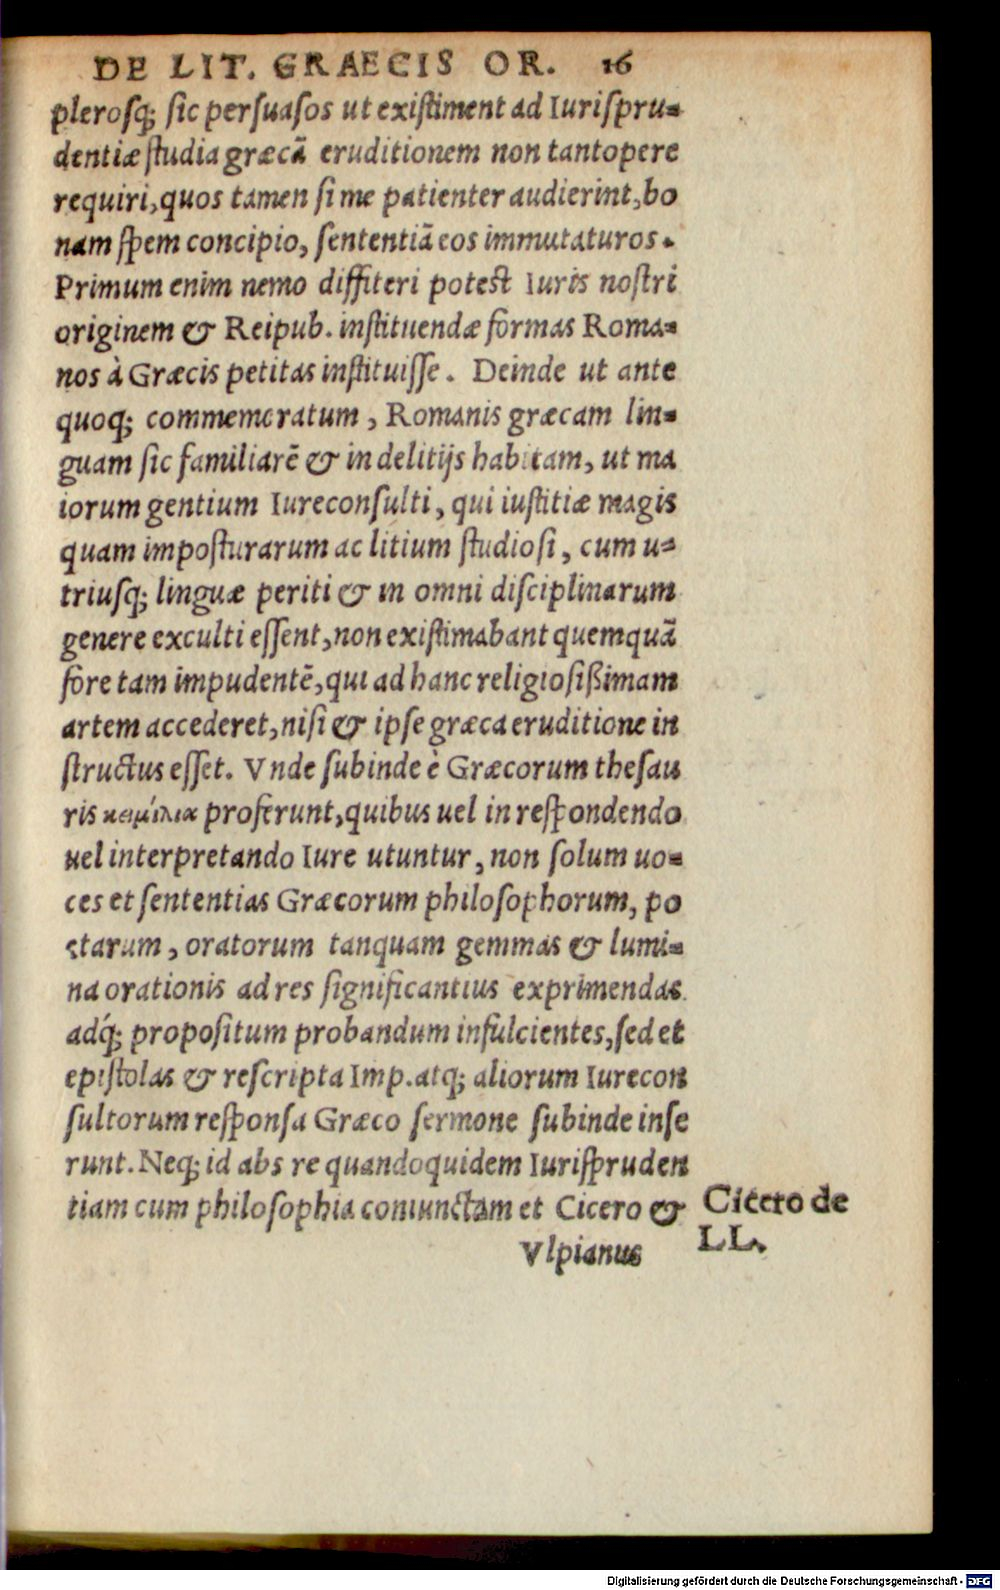 DE LIT. GRAECIS OR. 16
plerosq; sic persuasos ut existiment ad Iurispru-
dentiæ studia græcā eruditionem non tantopere
requiri, quos tamen si me patienter audierint, bo
nam spem concipio, sententiā eos immutaturos.
Primum enim nemo diffiteri potest Iuris nostri
originem & Reipub. instituendæ formas Roma-
nos à Græcis petitas instituisse. Deinde ut ante
quoq; commemoratum, Romanis græcam lin-
guam sic familiarē & in delitijs habitam, ut ma
iorum gentium Iureconsulti, qui iustitiæ magis
quam imposturarum ac litium studiosi, cum u-
triusq; linguæ periti & in omni disciplinarum
genere exculti essent, non existimabant quemquā
fore tam impudentē, qui ad hanc religiosißimam
artem accederet, nisi & ipse græca eruditione in
structus esset. Vnde subinde è Græcorum thesau
ris κειμήλια proferunt, quibus uel in respondendo
uel interpretando Iure utuntur, non solum uo-
ces et sententias Græcorum philosophorum, po
etarum, oratorum tanquam gemmas & lumi-
na orationis ad res significantius exprimendas
adq́; propositum probandum infulcientes, sed et
epistolas & rescripta Imp. atq; aliorum Iurecon
sultorum responsa Græco sermone subinde inse
runt. Neq; id abs re quandoquidem Iurispruden
tiam cum philosophia coniunctam et Cicero &
Cicero de
LL.
Vlpianus
Digitalisierung gefördert durch die Deutsche Forschungsgemeinschaft - DFG